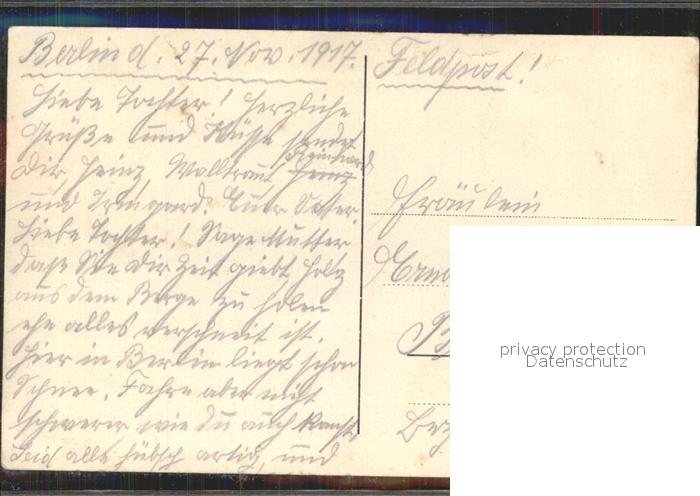 Berlin d. 27. Nov. 1917.
Liebe Tochter! Herzliche
Grüße und Küsse sendet
Reinhard
Dir, Heinz, Walltraut, Heinz
und Irmgard. Euer Vater.
Liebe Tochter! Sage Mutter
daß Sie Dir Zeit giebt, Holz
aus dem Berge zu holen
ehe alles verschneit ist.
Hier in Berlin liegt schon
Schnee. Fahre aber nicht
schwerer wie Du auch kanst.
Seid alle hübsch artig, und
Feldpost!
Fräulein
Erna
B
Bez
privacy protection
Datenschutz